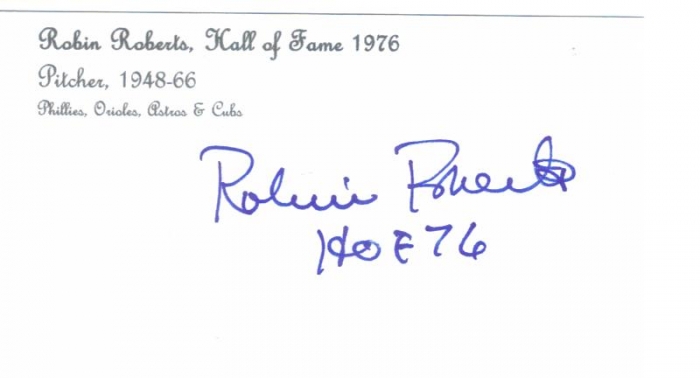 Robin Roberts, Hall of Fame 1976
Pitcher, 1948-66
Phillies, Orioles, Astros & Cubs
Robin Roberts
HOF 76